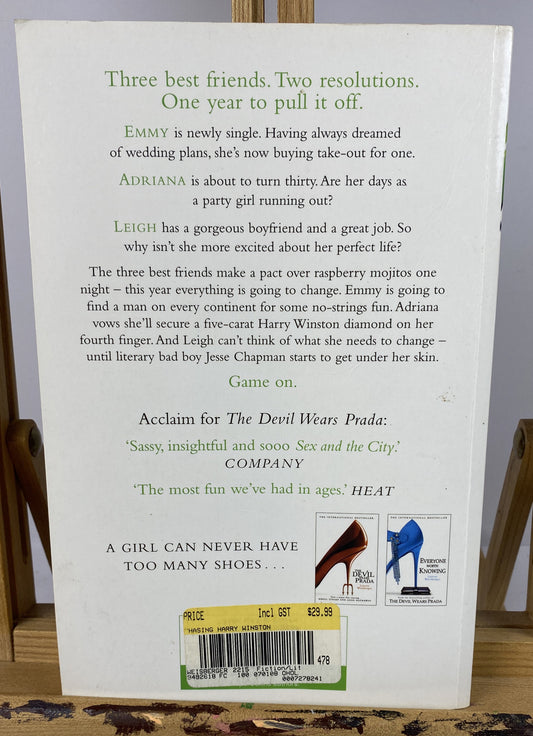 Three best friends. Two resolutions.
One year to pull it off.
EMMY is newly single. Having always dreamed
of wedding plans, she's now buying take-out for one.
ADRIANA is about to turn thirty. Are her days as
a party girl running out?
LEIGH has a gorgeous boyfriend and a great job. So
why isn't she more excited about her perfect life?
The three best friends make a pact over raspberry mojitos one
night – this year everything is going to change. Emmy is going to
find a man on every continent for some no-strings fun. Adriana
vows she'll secure a five-carat Harry Winston diamond on her
fourth finger. And Leigh can't think of what she needs to change –
until literary bad boy Jesse Chapman starts to get under her skin.
Game on.
Acclaim for The Devil Wears Prada:
'Sassy, insightful and sooo Sex and the City.'
COMPANY
'The most fun we've had in ages.' HEAT
A GIRL CAN NEVER HAVE
TOO MANY SHOES . . .
THE INTERNATIONAL BESTSELLER
THE DEVIL
WEARS
PRADA
INTERNATIONAL BESTSELLER
EVERYONE
WORTH
KNOWING
THE DEVIL WEARS PRADA
PRICE Incl GST $29.99
HASING HARRY WINSTON
478
WEISBERGER 2215 Fiction/Lit
9492618 FC 100 070108 OHOL 0007278241